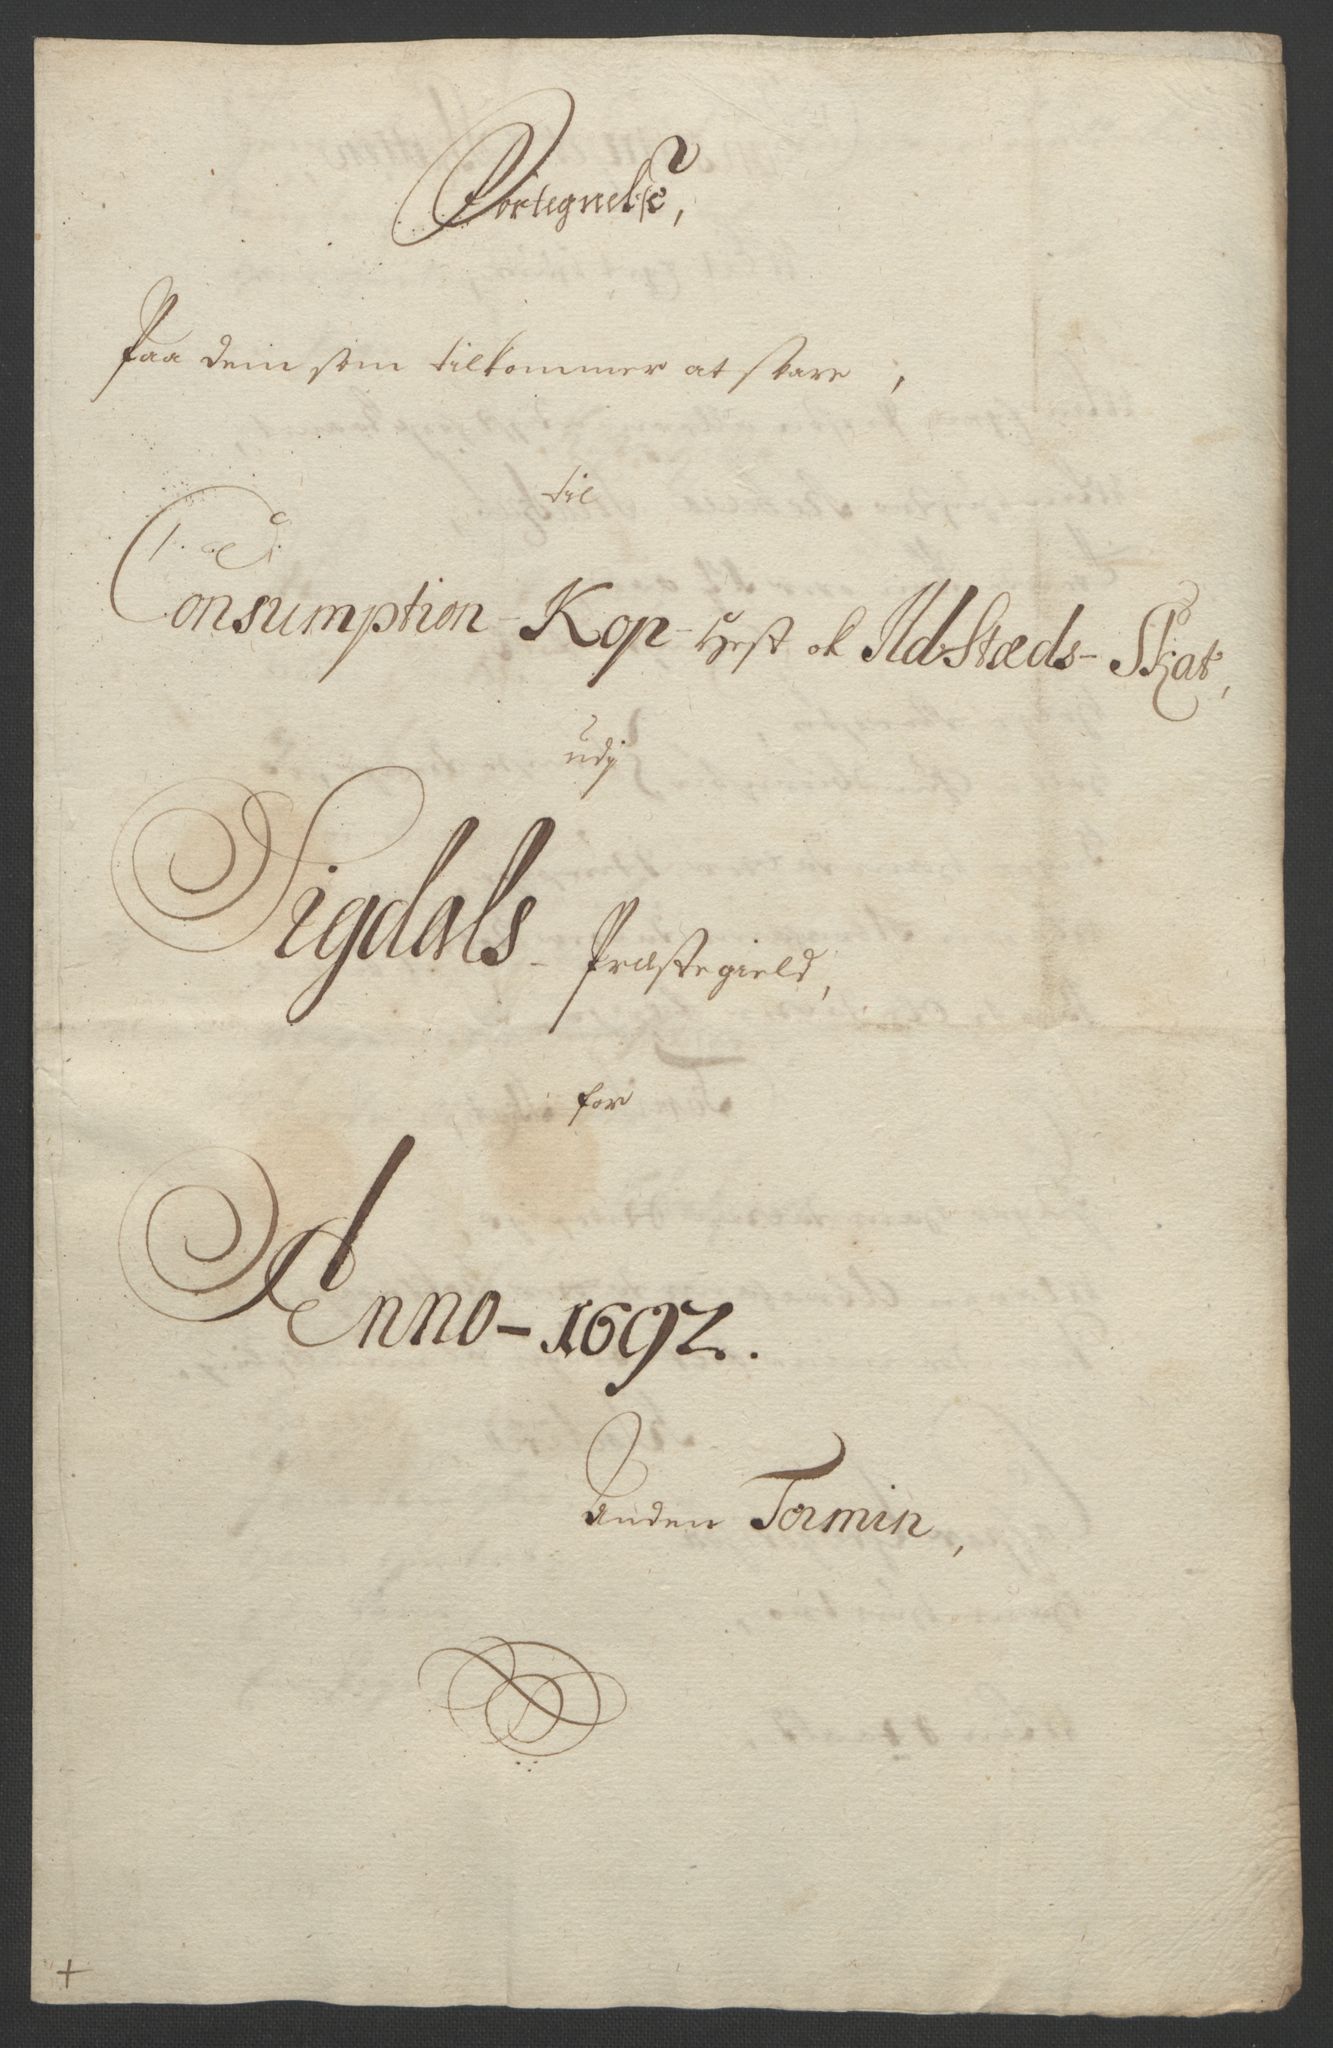 Fortegnelse,
Paa dem som tilkommer at svare,
til
Consumption- Kop- Hest ok Ildstæds- Skat,
udj
Sigdals- Præstegield,
for
Anno- 1692.
Anden Termin,